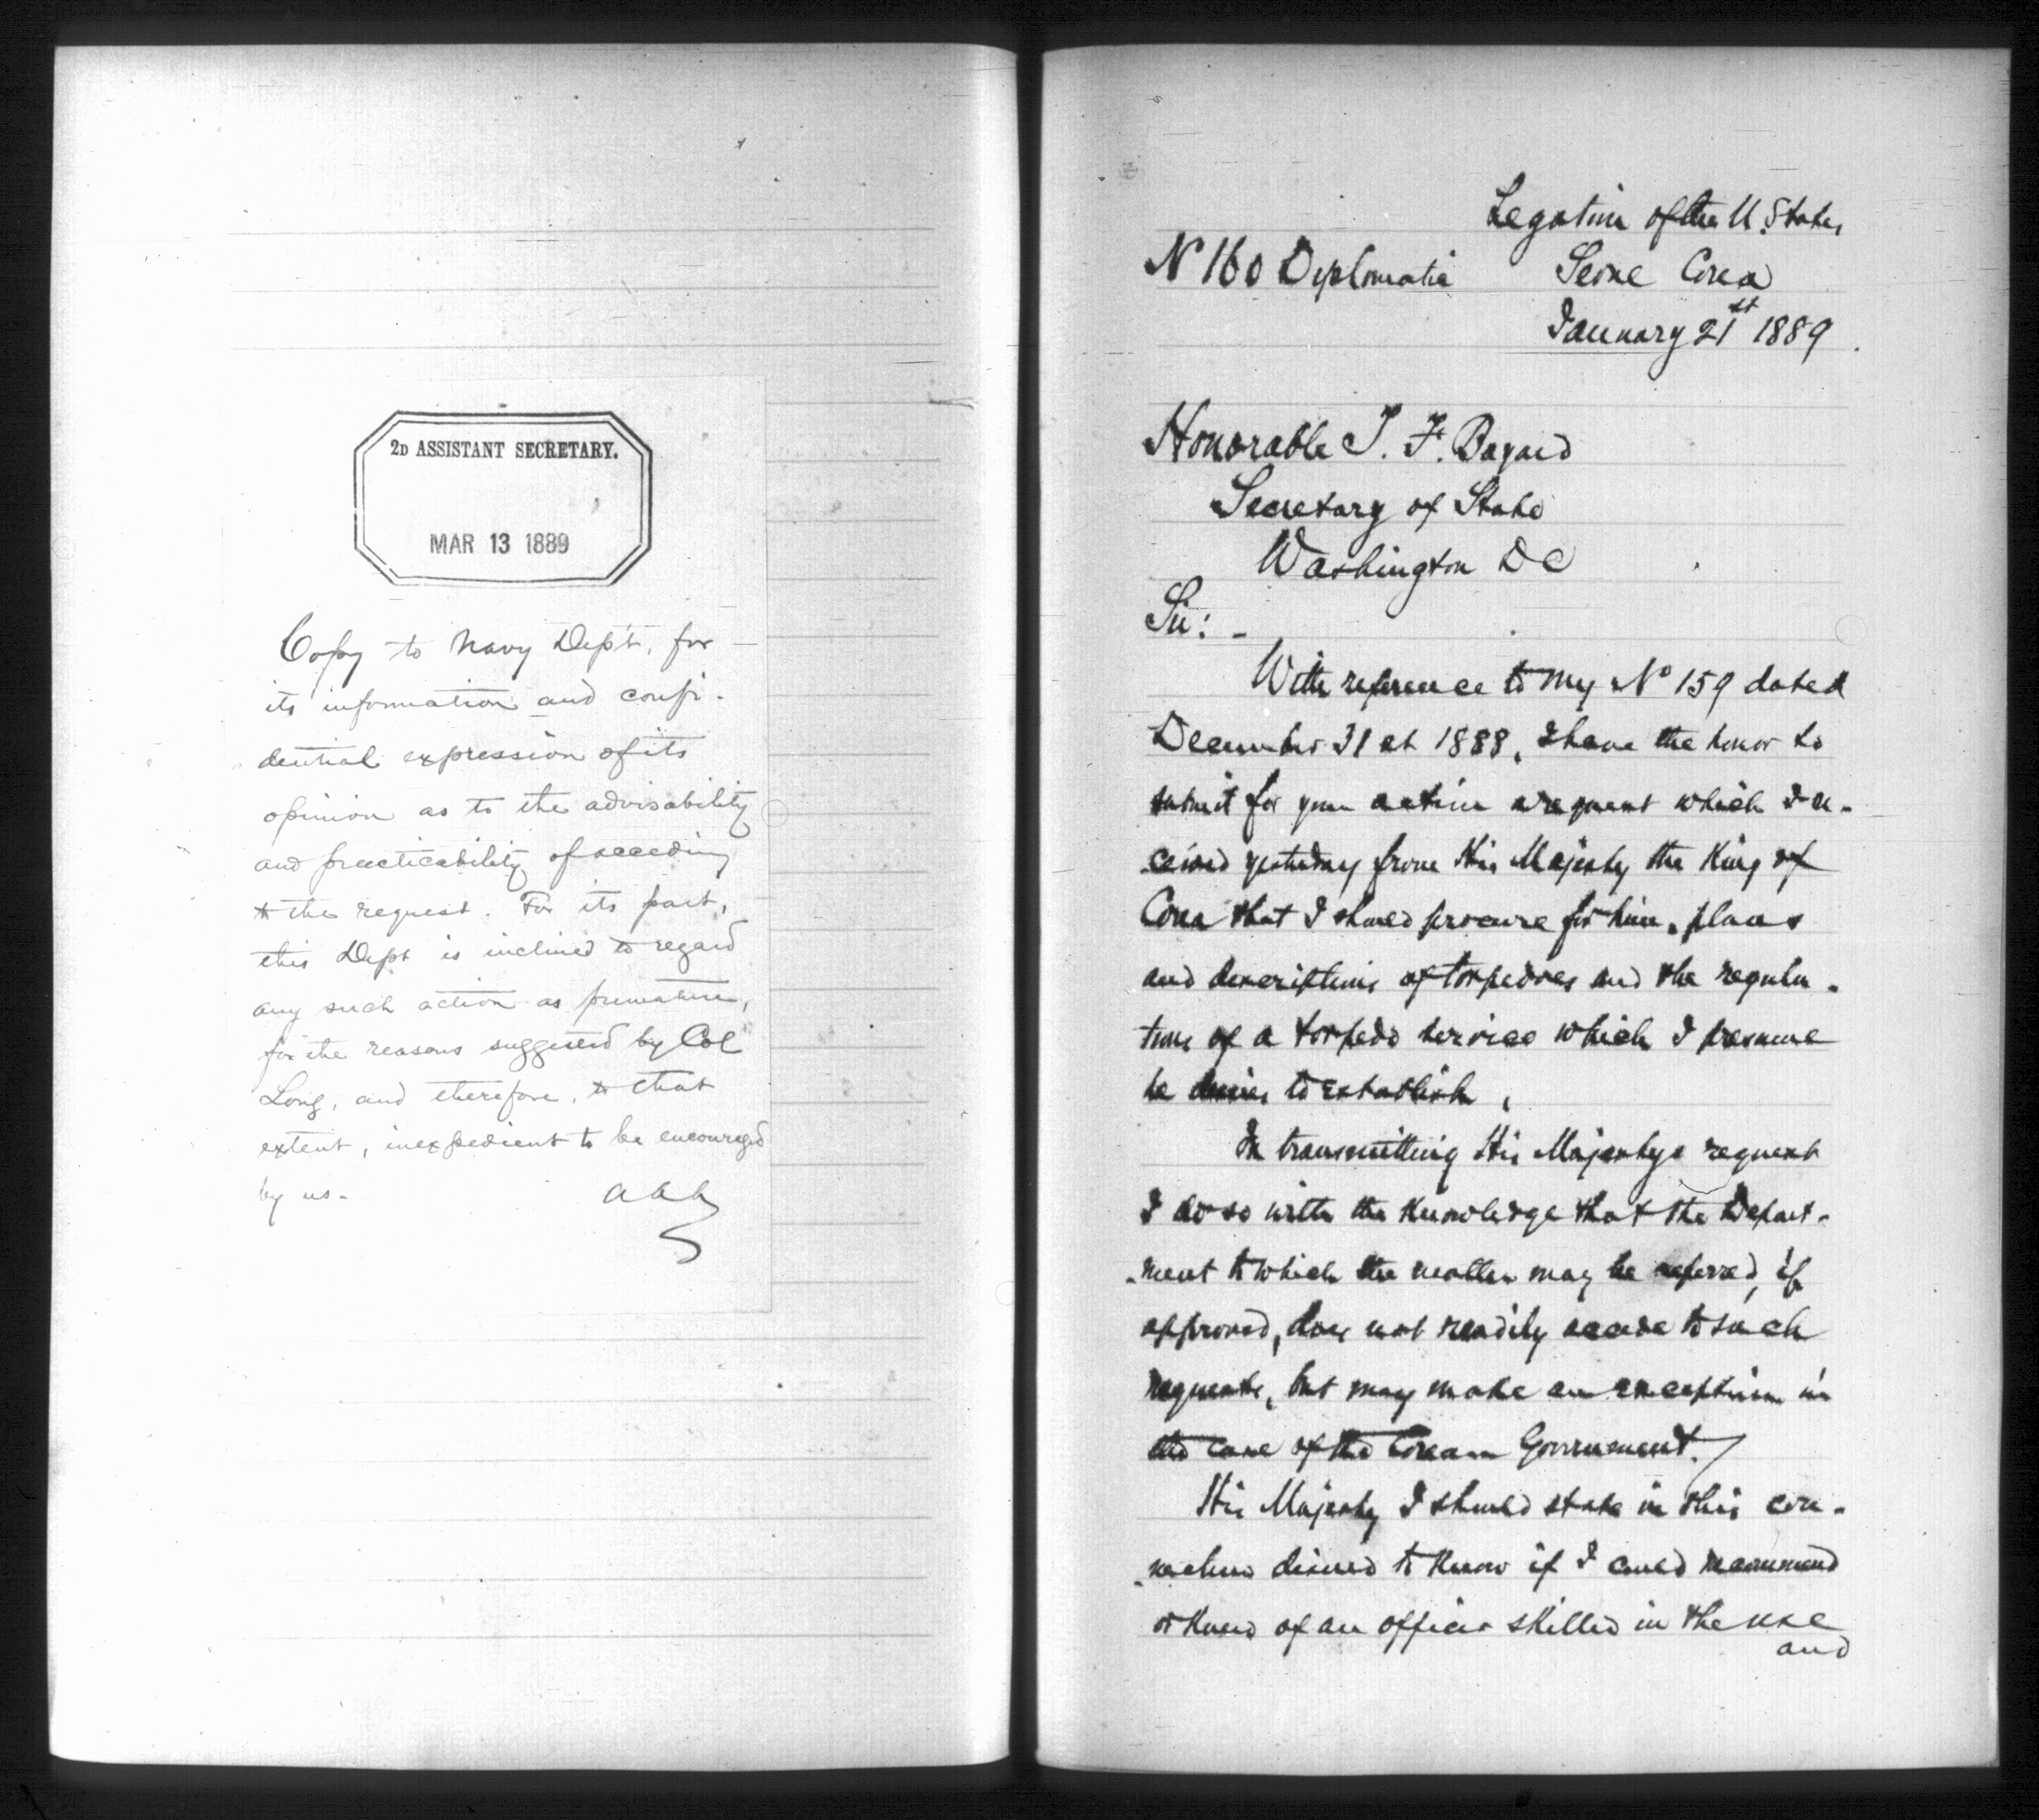 2D ASSISTANT SECRETARY.
MAR 13 1889
Copy to Navy Dep't, for
its information and confi-
dential expression of its
opinion as to the advisability
and practicability of acceding
to the request. For its part,
this Dept is inclined to regard
any such action as premature,
for the reasons suggested by Col
Long, and therefore, to that
extent, inexpedient to be encouraged
by us.
Legation of the U. States
Nº 160 Diplomatic
Seoul Corea
January 21st 1889
Honorable T. F. Bayard
Secretary of State
Washington DC
Sir: -
With reference to my Nº 159 dated
December 31st 1888, I have the honor to
submit for your action a request which I re-
-ceived yesterday from His Majesty the King of
Corea that I should procure for him, plans
and descriptions of torpedoes and the regula-
tions of a torpedo service which I presume
he desires to establish.
In transmitting His Majestys request
I do so with the knowledge that the Depart-
-ment to which the matter may be referred, if
approved, does not readily accede to such
requests, but may make an exception in
the case of the Corean Government.
His Majesty I should state in this con-
-nection desired to know if I could recommend
or knew of an officer skilled in the use
and